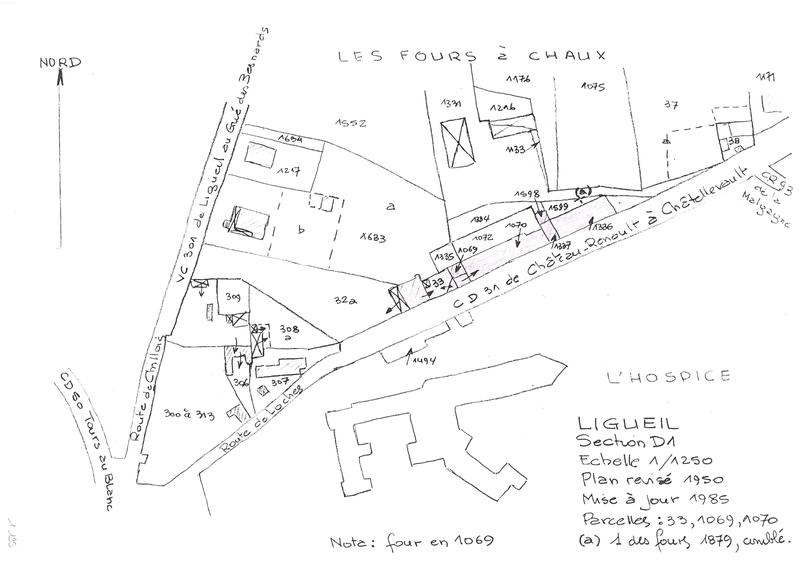 NORD
LES FOURS à CHAUX
1176
1075
1171
1331
1216
37
1552
1133
38
1654
1217
CR 93
de la
1598
(a)
1599
a
1334
1072
1070
1336
b
1633
1337
1335
1069
33
VC 301 de Ligueil au Gué des Besnards
CD 31 de Château-Renault à Châtellerault
32a
309
308
a
1494
306
307
300 à 313
Route de Cinillois
Route de Loches
CD 50 Tours au Blanc
L'HOSPICE
LIGUEIL
Section D1
Echelle 1/1250
Plan revisé 1950
Mise à jour 1985
Parcelles : 33, 1069, 1070
(a) 1 des fours 1879, comblé.
Nota : four en 1069